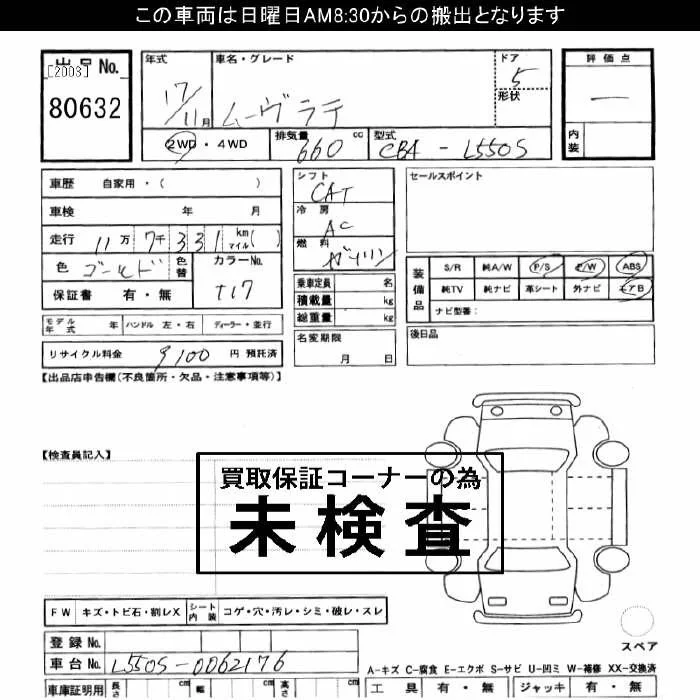 この車両は日曜日AM8:30からの搬出となります
出品No.
[2003]
80632
年式
17/11月
車名・グレード
ムーヴラテ
ドア
5
形状
評価点
―
内装
2WD・4WD
排気量
660 cc
型式
CBA-L550S
車歴 自家用・( )
車検 年 月
走行 11万7千331 km マイル( )
色 ゴールド 色替
カラーNo.
T17
保証書 有・無
シフト
CAT
冷房
AC
燃料
ガソリン
乗車定員 名
積載量 kg
総重量 kg
セールスポイント
装備品
S/R 純A/W P/S P/W ABS
純TV 純ナビ 革シート 外ナビ エアB
ナビ型番:
モデル年式 年 ハンドル 左・右 ディーラー・並行
リサイクル料金 9100 円 預託済
名変期限
月 日
後日品
【出品店申告欄(不良箇所・欠品・注意事項等)】
【検査員記入】
買取保証コーナーの為
未検査
FW キズ・トビ石・割レX シート内装 コゲ・穴・汚レ・シミ・破レ・スレ
スペア
登録No.
車台No. L550S-0062176
A-キズ C-腐食 E-エクボ S-サビ U-凹ミ W-補修 XX-交換済
車庫証明用 長さ cm 幅 cm 高さ cm
工具 有・無 ジャッキ 有・無